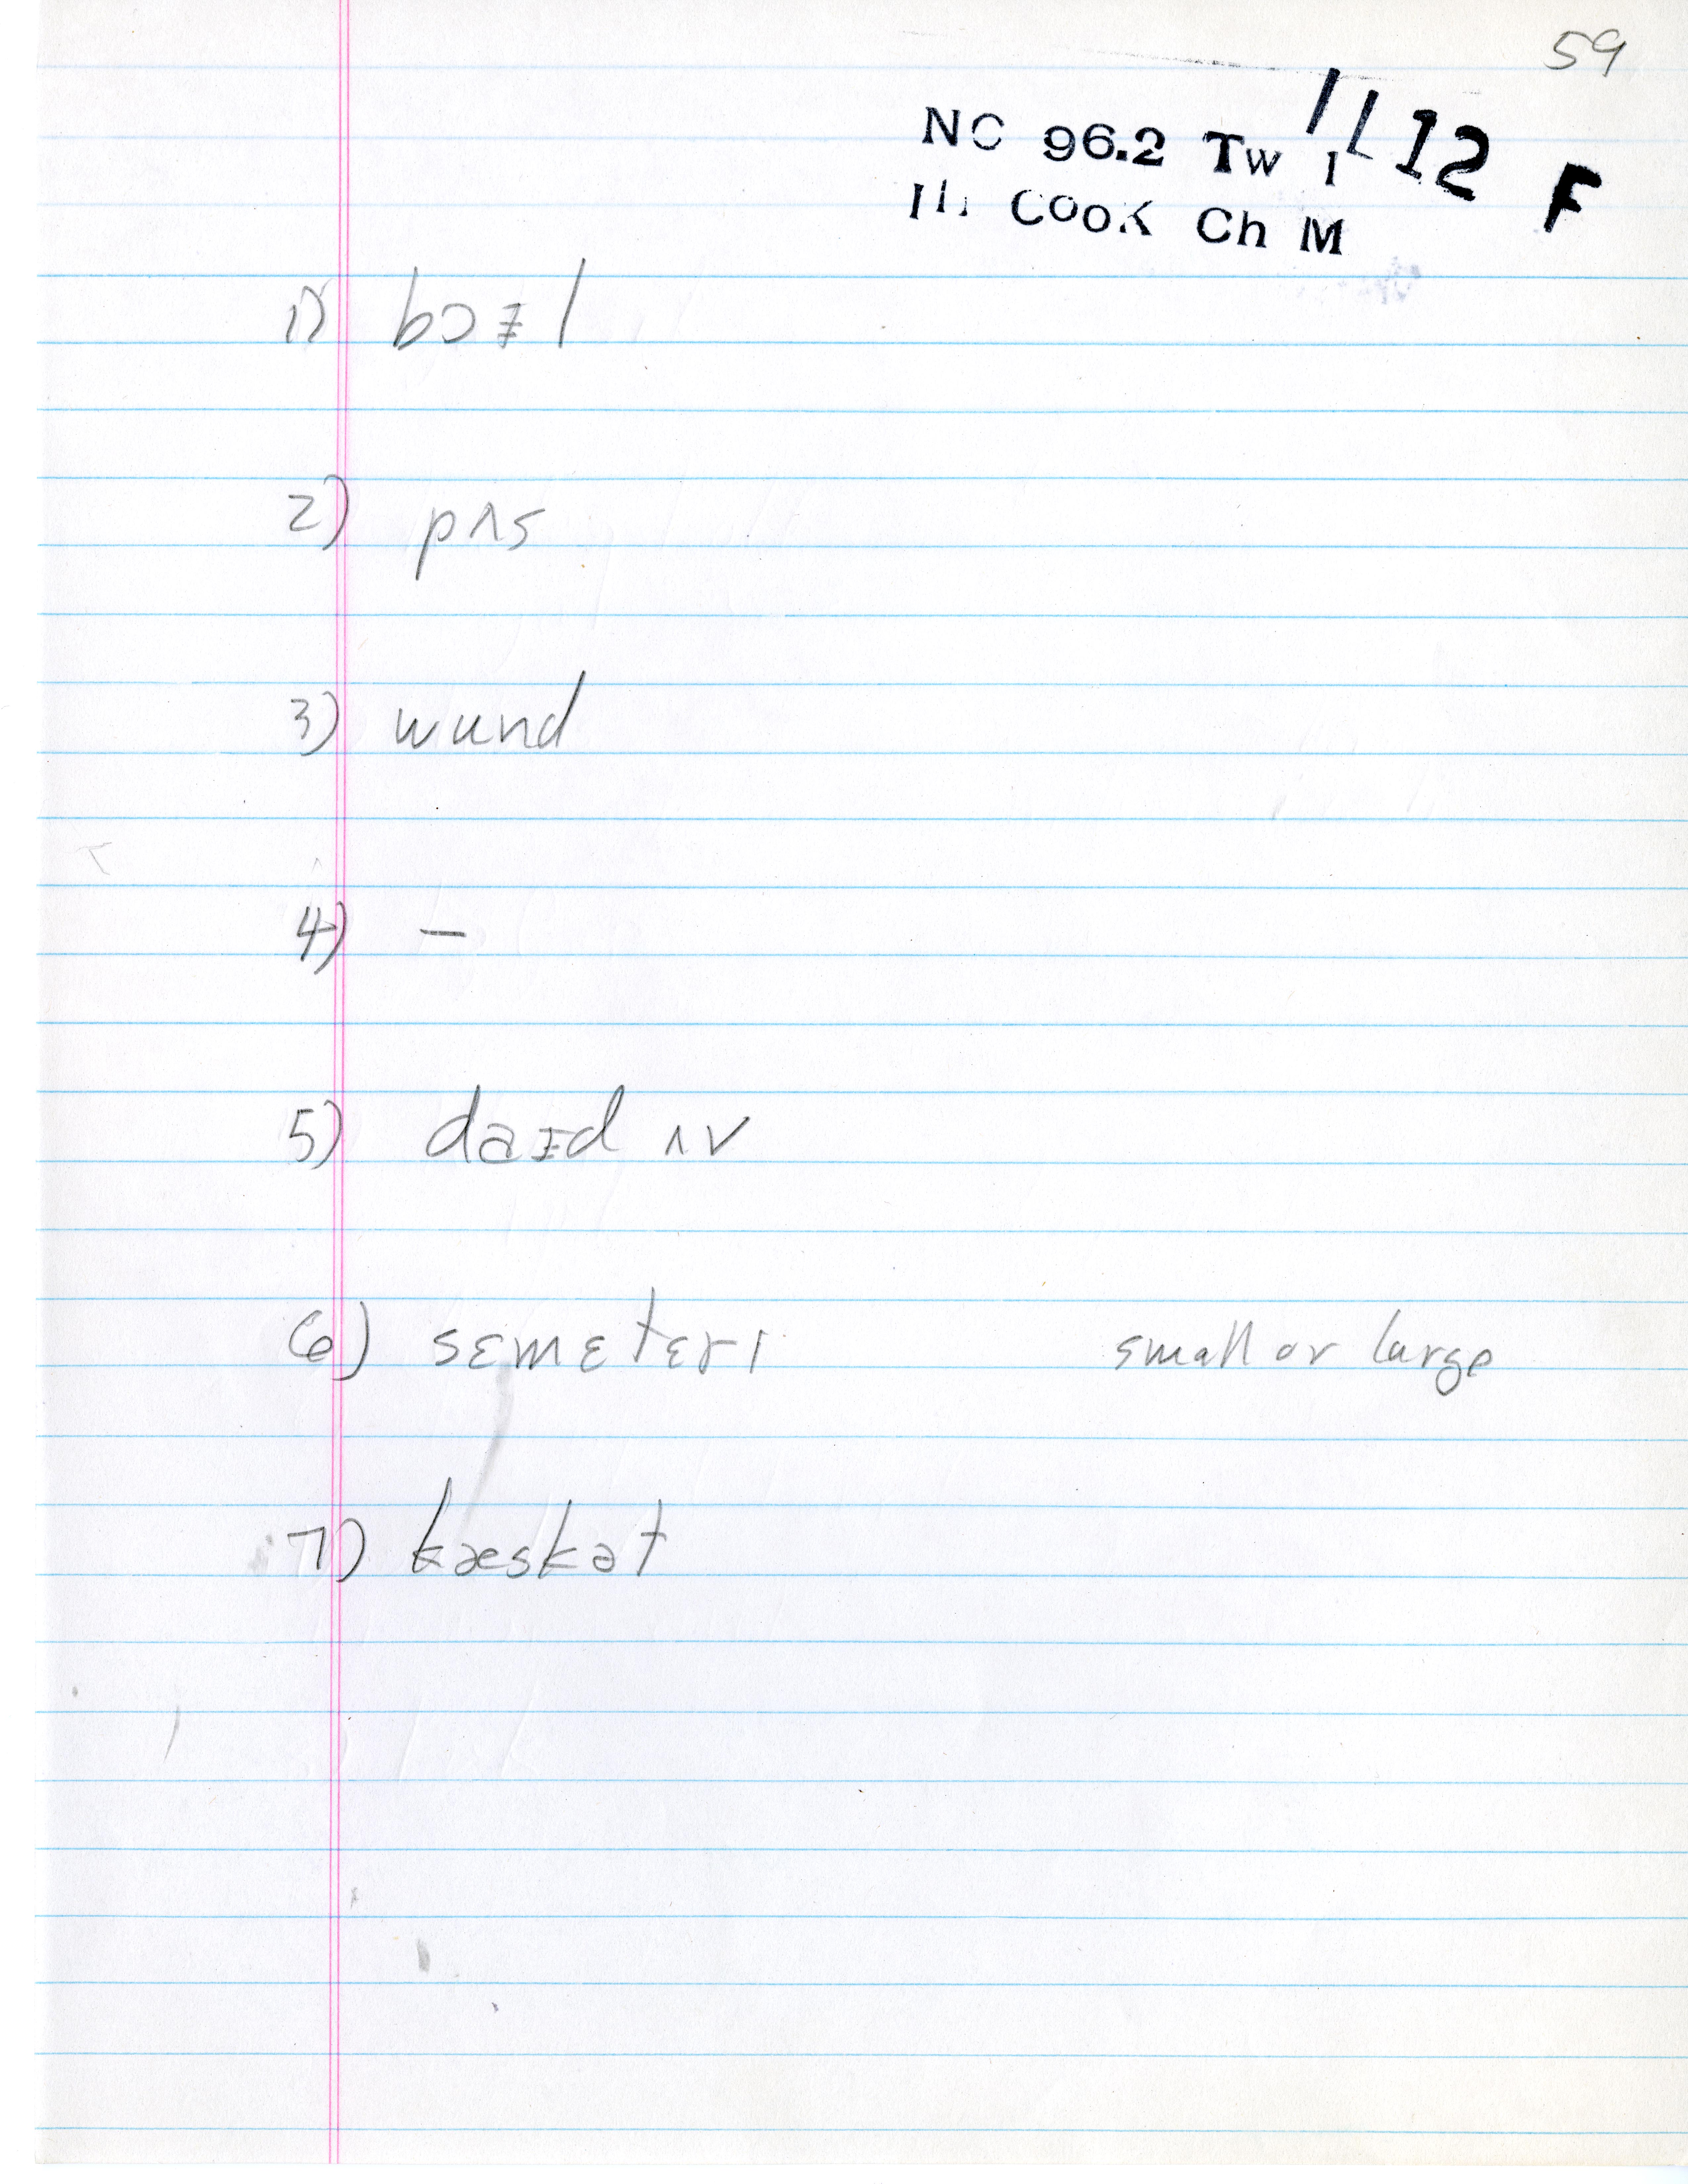 59
NC 96.2 Tw I IL 12 F
Ill Cook Ch M
1) bɔɪl
2) pʌs
3) wund
4) –
5) daɪd ʌv
6) sɛmɛtɛrɪ small or large
7) kæskət